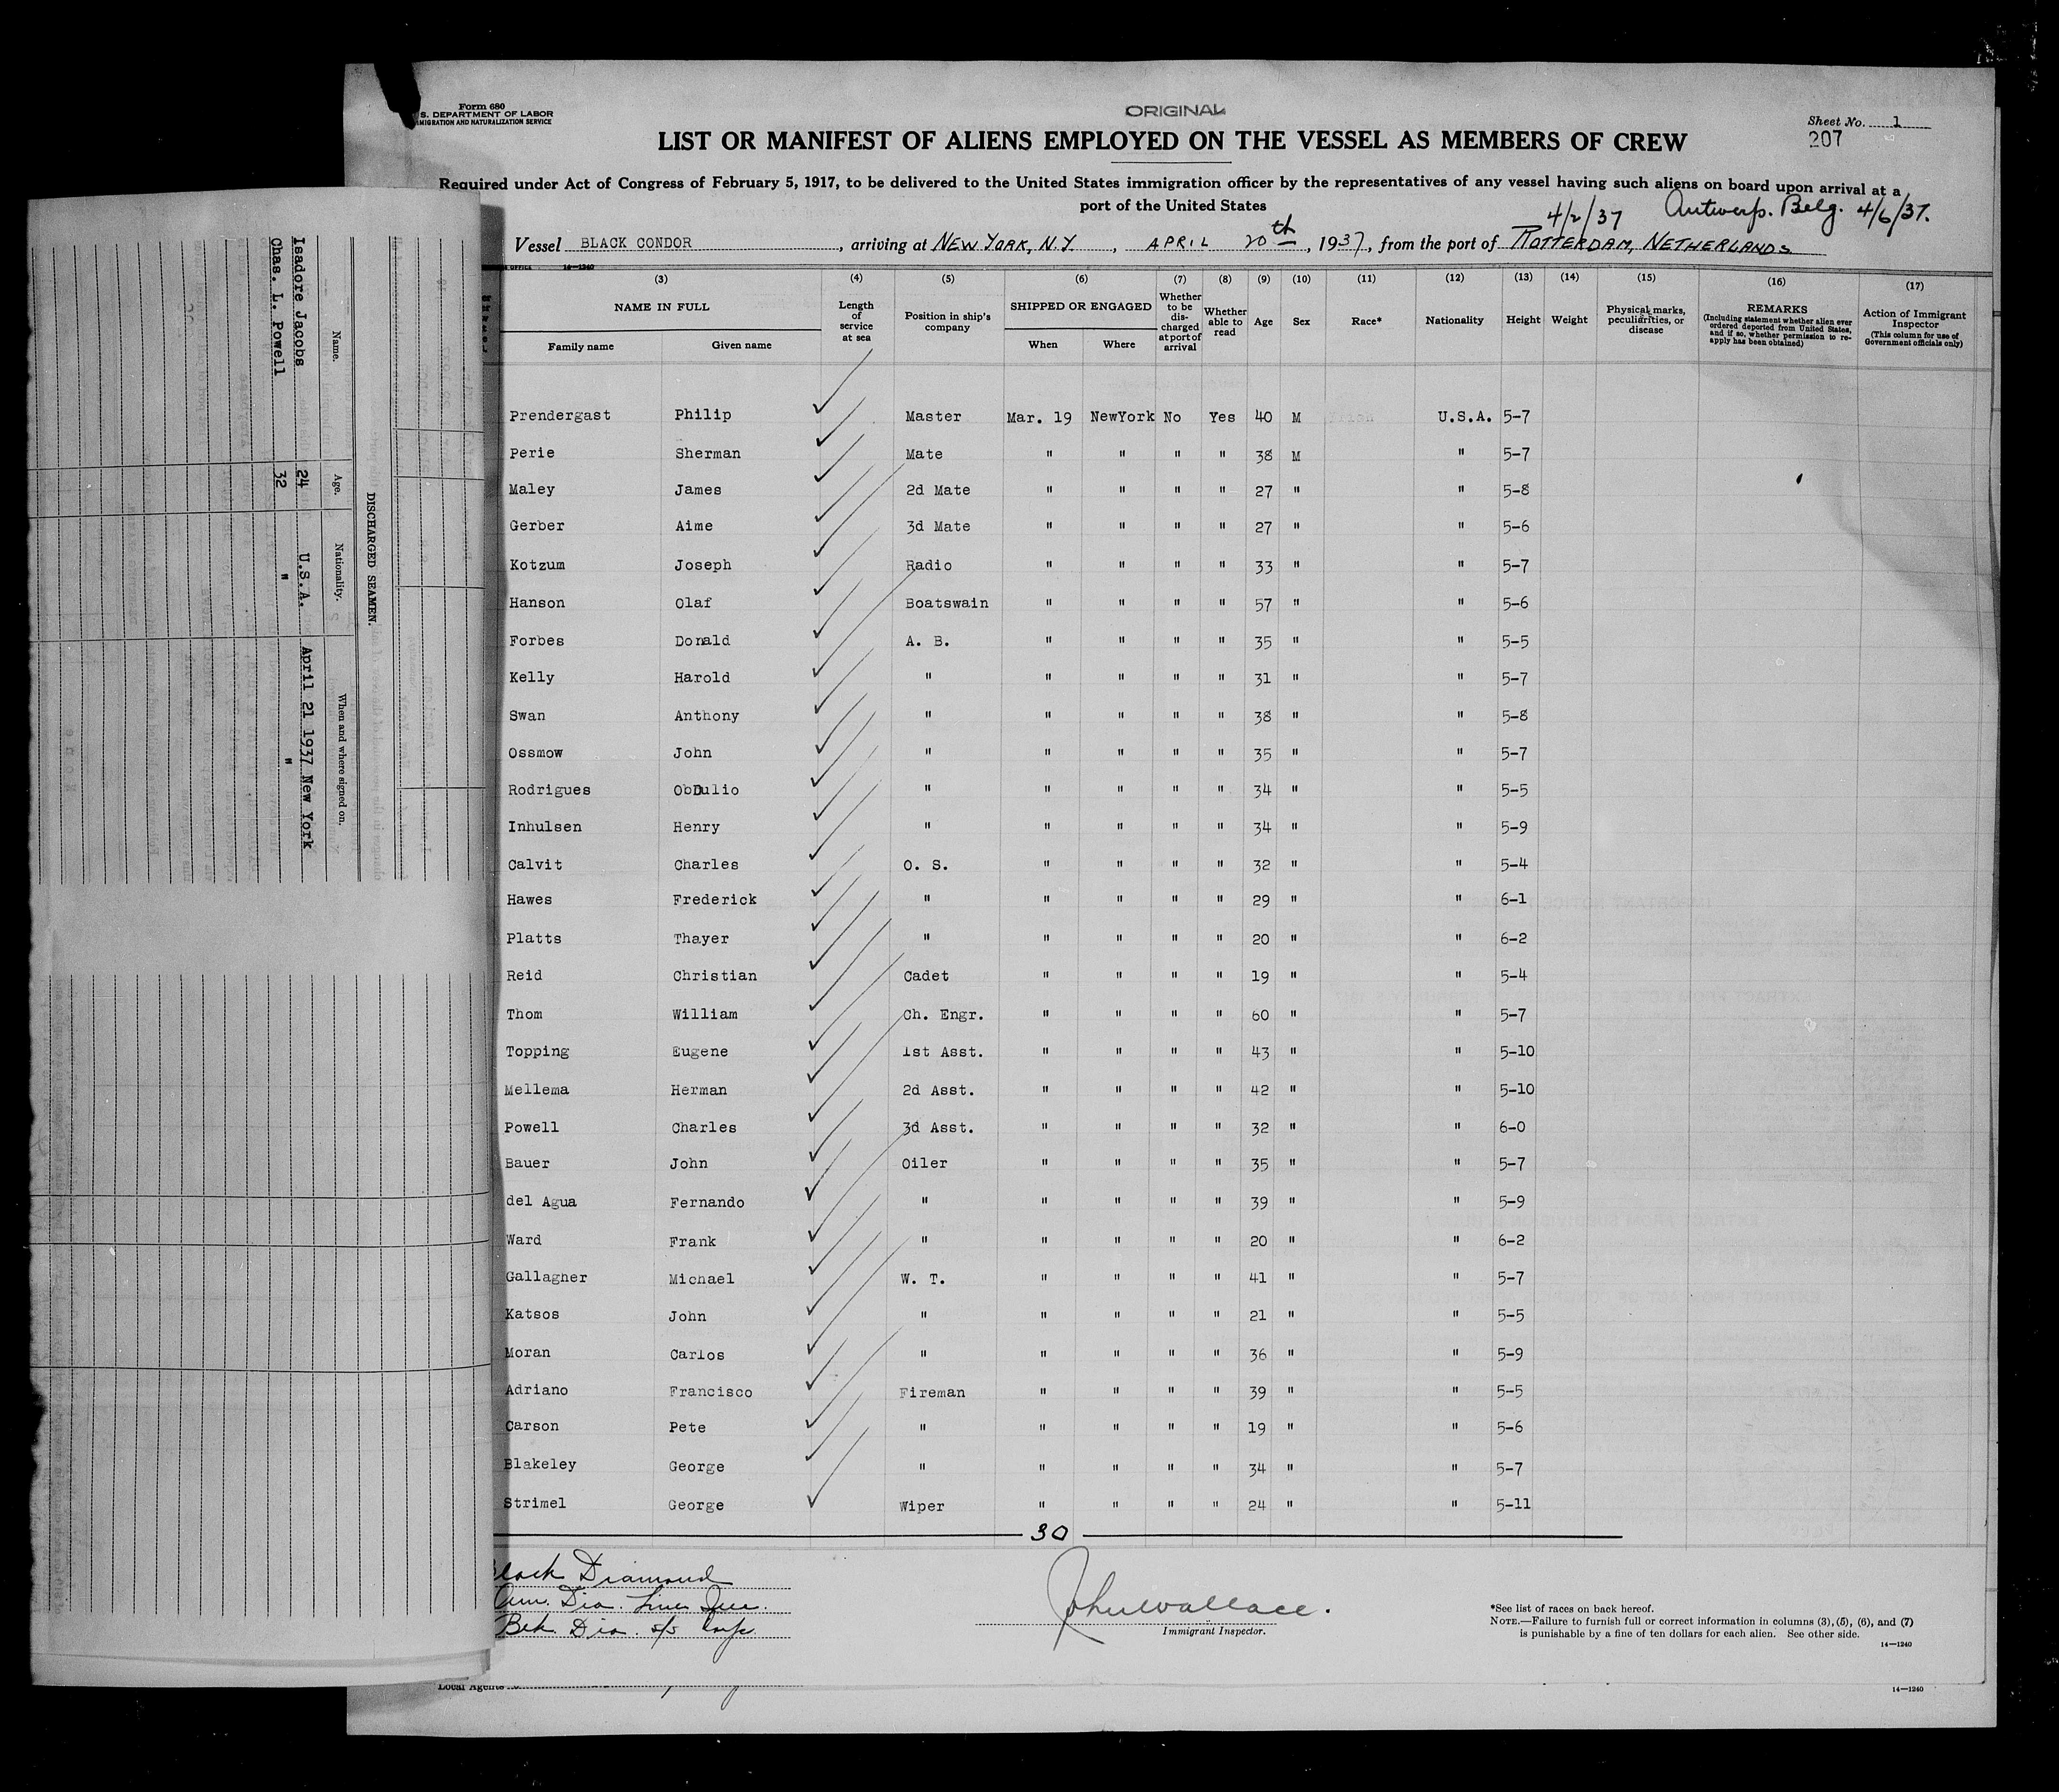 Form 680
S. DEPARTMENT OF LABOR
MIGRATION AND NATURALIZATION SERVICE
ORIGINAL
Sheet No. 1
207
LIST OR MANIFEST OF ALIENS EMPLOYED ON THE VESSEL AS MEMBERS OF CREW
Required under Act of Congress of February 5, 1917, to be delivered to the United States immigration officer by the representatives of any vessel having such aliens on board upon arrival at a
port of the United States
4/2/37 Antwerp. Belg. 4/6/37.
Vessel BLACK CONDOR, arriving at NEW YORK, N.Y., APRIL 20th, 1937, from the port of ROTTERDAM, NETHERLANDS
14—1240
(3) (4) (5) (6) (7) (8) (9) (10) (11) (12) (13) (14) (15) (16) (17)
NAME IN FULL
Family name Given name
Length of service at sea
Position in ship's company
SHIPPED OR ENGAGED
When Where
Whether to be discharged at port of arrival
Whether able to read
Age Sex Race* Nationality Height Weight
Physical marks, peculiarities, or disease
REMARKS
(Including statement whether alien ever ordered deported from United States, and if so, whether permission to re-apply has been obtained)
Action of Immigrant Inspector
(This column for use of Government officials only)
Prendergast Philip Master Mar. 19 NewYork No Yes 40 M U.S.A. 5-7
Perie Sherman Mate " " " " 38 M " 5-7
Maley James 2d Mate " " " " 27 " " 5-8
Gerber Aime 3d Mate " " " " 27 " " 5-6
Kotzum Joseph Radio " " " " 33 " " 5-7
Hanson Olaf Boatswain " " " " 57 " " 5-6
Forbes Donald A. B. " " " " 35 " " 5-5
Kelly Harold " " " " " 31 " " 5-7
Swan Anthony " " " " " 38 " " 5-8
Ossmow John " " " " " 35 " " 5-7
Rodrigues ObDulio " " " " " 34 " " 5-5
Inhulsen Henry " " " " " 34 " " 5-9
Calvit Charles O. S. " " " " 32 " " 5-4
Hawes Frederick " " " " " 29 " " 6-1
Platts Thayer " " " " " 20 " " 6-2
Reid Christian Cadet " " " " 19 " " 5-4
Thom William Ch. Engr. " " " " 60 " " 5-7
Topping Eugene 1st Asst. " " " " 43 " " 5-10
Mellema Herman 2d Asst. " " " " 42 " " 5-10
Powell Charles 3d Asst. " " " " 32 " " 6-0
Bauer John Oiler " " " " 35 " " 5-7
del Agua Fernando " " " " " 39 " " 5-9
Ward Frank " " " " " 20 " " 6-2
Gallagher Michael W. T. " " " " 41 " " 5-7
Katsos John " " " " " 21 " " 5-5
Moran Carlos " " " " " 36 " " 5-9
Adriano Francisco Fireman " " " " 39 " " 5-5
Carson Pete " " " " " 19 " " 5-6
Blakeley George " " " " " 34 " " 5-7
Strimel George Wiper " " " " 24 " " 5-11
30
lack Diamond
Am. Dia. Lines Inc.
Blk. Dia. s/s Corp.
John Wallace.
Immigrant Inspector.
*See list of races on back hereof.
NOTE.—Failure to furnish full or correct information in columns (3), (5), (6), and (7)
is punishable by a fine of ten dollars for each alien. See other side.
14—1240
Local Agents
14—1240
DISCHARGED SEAMEN.
Name. Age. Nationality. When and where signed on.
Isadore Jacobs 24 U.S.A. April 21 1937 New York
Chas. L. Powell 32 " "